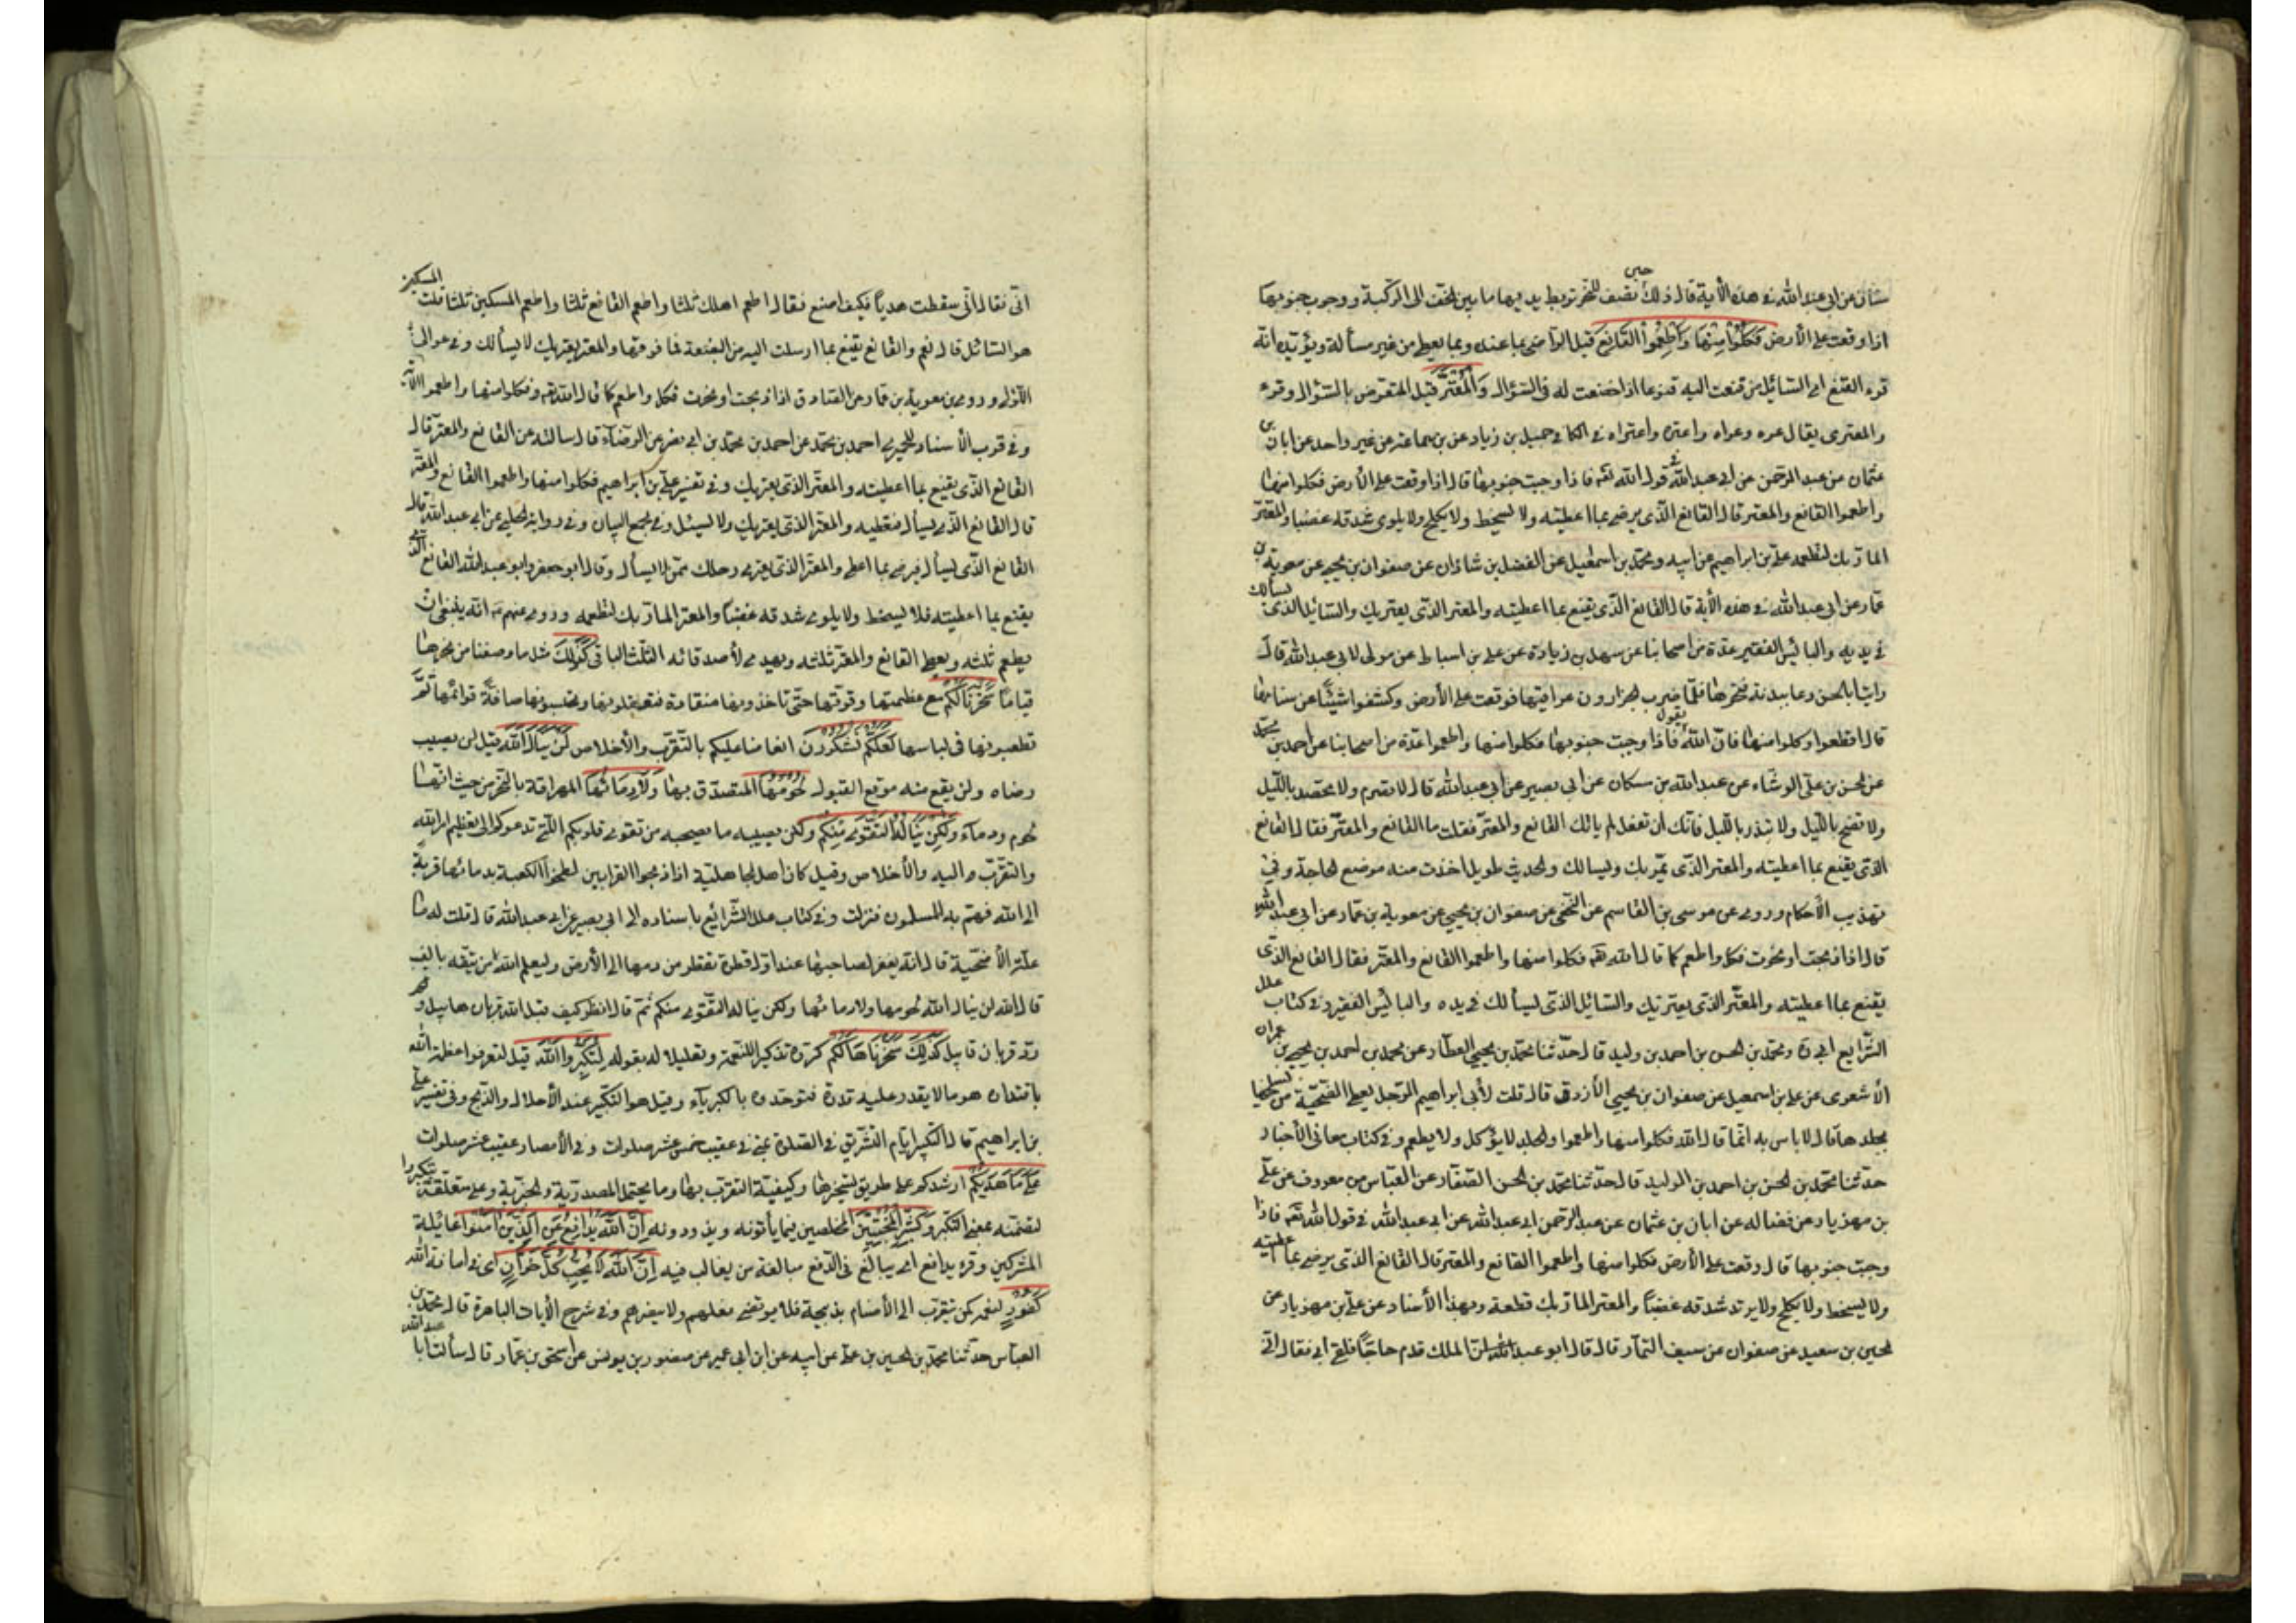 سنان عن ابى عبد الله فى هذه الأية قال ذلك حين تصف للنحر تربط يديها ما بين الخف الى الركبة ووجوب جنوبها
اذا وقعت على الأرض فَكُلُوا مِنْهَا وَاَطْعِمُوا الْقَانِعَ قيل الراضى بما عنده وبما يعطى من غير مسألة ويؤيده انه
قرء القنع اى السائل من قنعت اليه قنوعا اذا خضعت له فى السؤال وَالْمُعْتَرَّ قيل المتعرض بالسؤال وقرء
والمعترى يقال عره وعراه واعتره واعتراه فى الكافى حميد بن زياد عن بن سماعة عن غير واحد عن ابان بن
عثمان عن عبد الرحمن عن ابى عبد الله فى قول الله تعه فاذا وجبت جنوبها قال اذا وقعت على الأرض فكلوا منها
واطعموا القانع والمعتر قال القانع الذى يرضى بما اعطيته ولا يسخط ولا يكلح ولا يلوى شدقه غضبا والمعتر
المار بك لتطعمه على بن ابراهيم عن ابيه ومحمد بن اسمعيل عن الفضل بن شاذان عن صفوان بن يحيى عن معوية بن
عمار عن ابى عبد الله فى هذه الأية قال القانع الذى يقنع بما اعطيته والمعتر الذى يعتريك والسائل الذى يسألك
فى يديه والبائس الفقير عدة من اصحابنا عن سهل بن زياد عن على بن اسباط عن مولى لابى عبد الله قال
رايت ابا الحسن دعا ببدنة فنحرها فلما ضرب الجزارون عراقيبها فوقعت على الأرض وكشفوا شيئا عن سنامها
قال اقطعوا وكلوا منها فان الله يقول فاذا وجبت جنوبها فكلوا منها واطعموا عدة من اصحابنا عن احمد بن محمد
عن الحسن بن على الوشاء عن عبد الله بن سكان عن ابى بصير عن ابى عبد الله قال لا تصرم ولا تحصد بالليل
ولا تضح بالليل ولا تبذر بالليل فانك ان تفعل لم ياتك القانع والمعتر فقلت ما القانع والمعتر فقال القانع
الذى يقنع بما اعطيته والمعتر الذى يمر بك وليسالك والحديث طويل اخذت منه موضع الحاجة وفى
تهذيب الأحكام وروى عن موسى بن القاسم عن النخعى عن صفوان بن يحيى عن معوية بن عمار عن ابى عبد الله
قال اذا ذبحت او نحرت فكل واطعم كما قال الله تعه فكلوا منها واطعموا القانع والمعتر فقال القانع الذى
يقنع بما اعطيته والمعتر الذى يعتريك والسائل الذى ليسألك فى يده والبائس الفقير وفى كتاب علل
الشرايع ابى ره ومحمد بن الحسن بن احمد بن وليد قال حدثنا محمد بن يحيى العطار عن محمد بن احمد بن يحيى بن عمران
الأشعرى عن على بن اسمعيل عن صفوان بن يحيى الأزرق قال قلت لأبى ابراهيم الرجل يعطى الضحية من يسلخها
بجلدها قال لا باس به انما قال الله فكلوا منها واطعموا والجلد لا يؤكل ولا يطعم وفى كتاب معانى الأخبار
حدثنا محمد بن الحسن بن احمد بن الوليد قال حدثنا محمد بن الحسن الصفار عن العباس بن معروف عن على
بن مهزيار عن فضاله عن ابان بن عثمان عن عبد الرحمن ابى عبد الله عن ابى عبد الله فى قول الله تعه فاذا
وجبت جنوبها قال وقعت على الأرض فكلوا منها واطعموا القانع والمعتر قال القانع الذى يرضى بما اعطيته
ولا يسخط ولا يكلح ولا يربد شدقه غضبا والمعتر المار بك قطعه وبهذا الأسناد عن على بن مهزيار عن
الحسين بن سعيد عن صفوان عن سيف التمار قال قال ابو عبد الله الملك قدم حاجا فلقى ابى فقال انى
انى فقال انى سقطت هديا فكيف اصنع فقال اطعم اهلك ثلثا واطعم القانع ثلثا واطعم المسكين ثلثا قلت المسكين
هو السائل قال نعم والقانع يقنع بما ارسلت اليه من البضعة فما فوقها والمعتر يعتريك لا يسألك وفى عوالى
اللآلى وروى بن معوية بن عمار عن الصادق اذا ذبحت او نحرت فكل واطعم كما قال الله تعه فكلوا منها واطعموا الآية
وفى قرب الأسناد للحميرى احمد بن محمد عن احمد بن محمد بن ابى نصر عن الرضا قال سالته عن القانع والمعتر قال
القانع الذى يقنع بما اعطيته والمعتر الذى يعتريك وفى تفسير على بن ابراهيم فكلوا منها واطعموا القانع والمعتر
قال القانع الذى يسأل فتعطيه والمعتر الذى يعتريك ولا ليسئل وفى مجمع البيان وفى رواية الحلبى عن ابى عبد الله قال
القانع الذى يسأل فيرضى بما اعطى والمعتر الذى يعترى رحلك ممن لا يسأل وقال ابو جعفر وابو عبد الله القانع الذى
يقنع بما اعطيته فلا يسخط ولا يلوى شدقه غضبا والمعتر المار بك لتطعمه وروى عنهم انه ينبغى ان
يطعم ثلثه ويعطى القانع والمعتر ثلثه ويهدى لأصدقائه الثلث الباقى كَذٰلِكَ مثل ما وصفنا من نحرها
قياما سَخَّرْنَا لَكُمْ مع عظمتها وقوتها حتى تاخذونها منقادة فتعقلونها وتحبسونها صافة قوائمها ثم
تطعنونها فى لباسها لَعَلَّكُمْ تَشْكُرُونَ انعامنا عليكم بالتقرب والأخلاص لَنْ يَنَالَ اللّٰهَ قيل لن يصيب
رضاه ولن يقع منه موقع القبول لُحُومُهَا المتصدق بها وَلَا دِمَاؤُهَا المهراقة بالنحر من حيث انها
لحوم ودماء وَلٰكِنْ يَنَالُهُ التَّقْوٰى مِنْكُمْ ولكن يصيبه ما يصحبه من تقوى قلوبكم التى تدعوكم الى تعظيم امر الله
والتقرب اليه والأخلاص وقيل كان اهل الجاهلية اذا ذبحوا القرابين لطخوا الكعبة بدمائها قربة
الى الله فهم به المسلمون فنزلت وفى كتاب علل الشرائع باسناده الى ابى بصير عن ابى عبد الله قال قلت له ما
علة الأضحية قال انه يغفر لصاحبها عند اول قطرة تقطر من دمها الى الأرض وليعلم الله من يتقه بالغيب
قال الله لن ينال الله لحومها ولا دمائها ولكن يناله التقوى منكم ثم قال انظر كيف قبل الله قربان هابيل و
رد قربان قابيل كَذٰلِكَ سَخَّرْنَاهَا لَكُمْ كرره تذكير اللنعمة وتعليلا له بقوله لِتُكَبِّرُوا اللّٰهَ قيل لتعرفوا عظمة الله
باقتداره على ما لا يقدر عليه غيره فتوحدوه بالكبرياء وقيل هو التكبير عند الأحلال والذبح وفى تفسير على
بن ابراهيم قال التكبير ايام التشريق فى الصلوة بمنى فى عقيب خمس عشر صلوات وفى الأمصار عقيب عشر صلوات
عَلٰى مَا هَدٰيكُمْ ارشدكم على طريق تسخيرها وكيفية التقرب بها وما يحتمل المصدرية والخبرية وعلى متعلقة بتكبروا
لتضمنه معنى التكبر وَبَشِّرِ الْمُحْسِنِينَ المخلصين فيما يأتونه ويذرونه اِنَّ اللّٰهَ يُدَافِعُ عَنِ الَّذِينَ اٰمَنُوا غائلة
المشركين وقرء يدافع اى يبالغ فى الدفع مبالغة من يغالب فيه اِنَّ اللّٰهَ لَا يُحِبُّ كُلَّ خَوَّانٍ اى فى امانة الله
كَفُورٍ لنعمه كمن يتقرب الى الأصنام بذبيحة فلا يرتضى فعلهم ولا ينصرهم وفى شرح الأيات الباهرة قال محمد بن
العباس حدثنا محمد بن الحسين بن على عن ابيه عن ابن ابى عمير عن منصور بن يونس عن اسحق بن عمار قال سألت ابا عبد الله